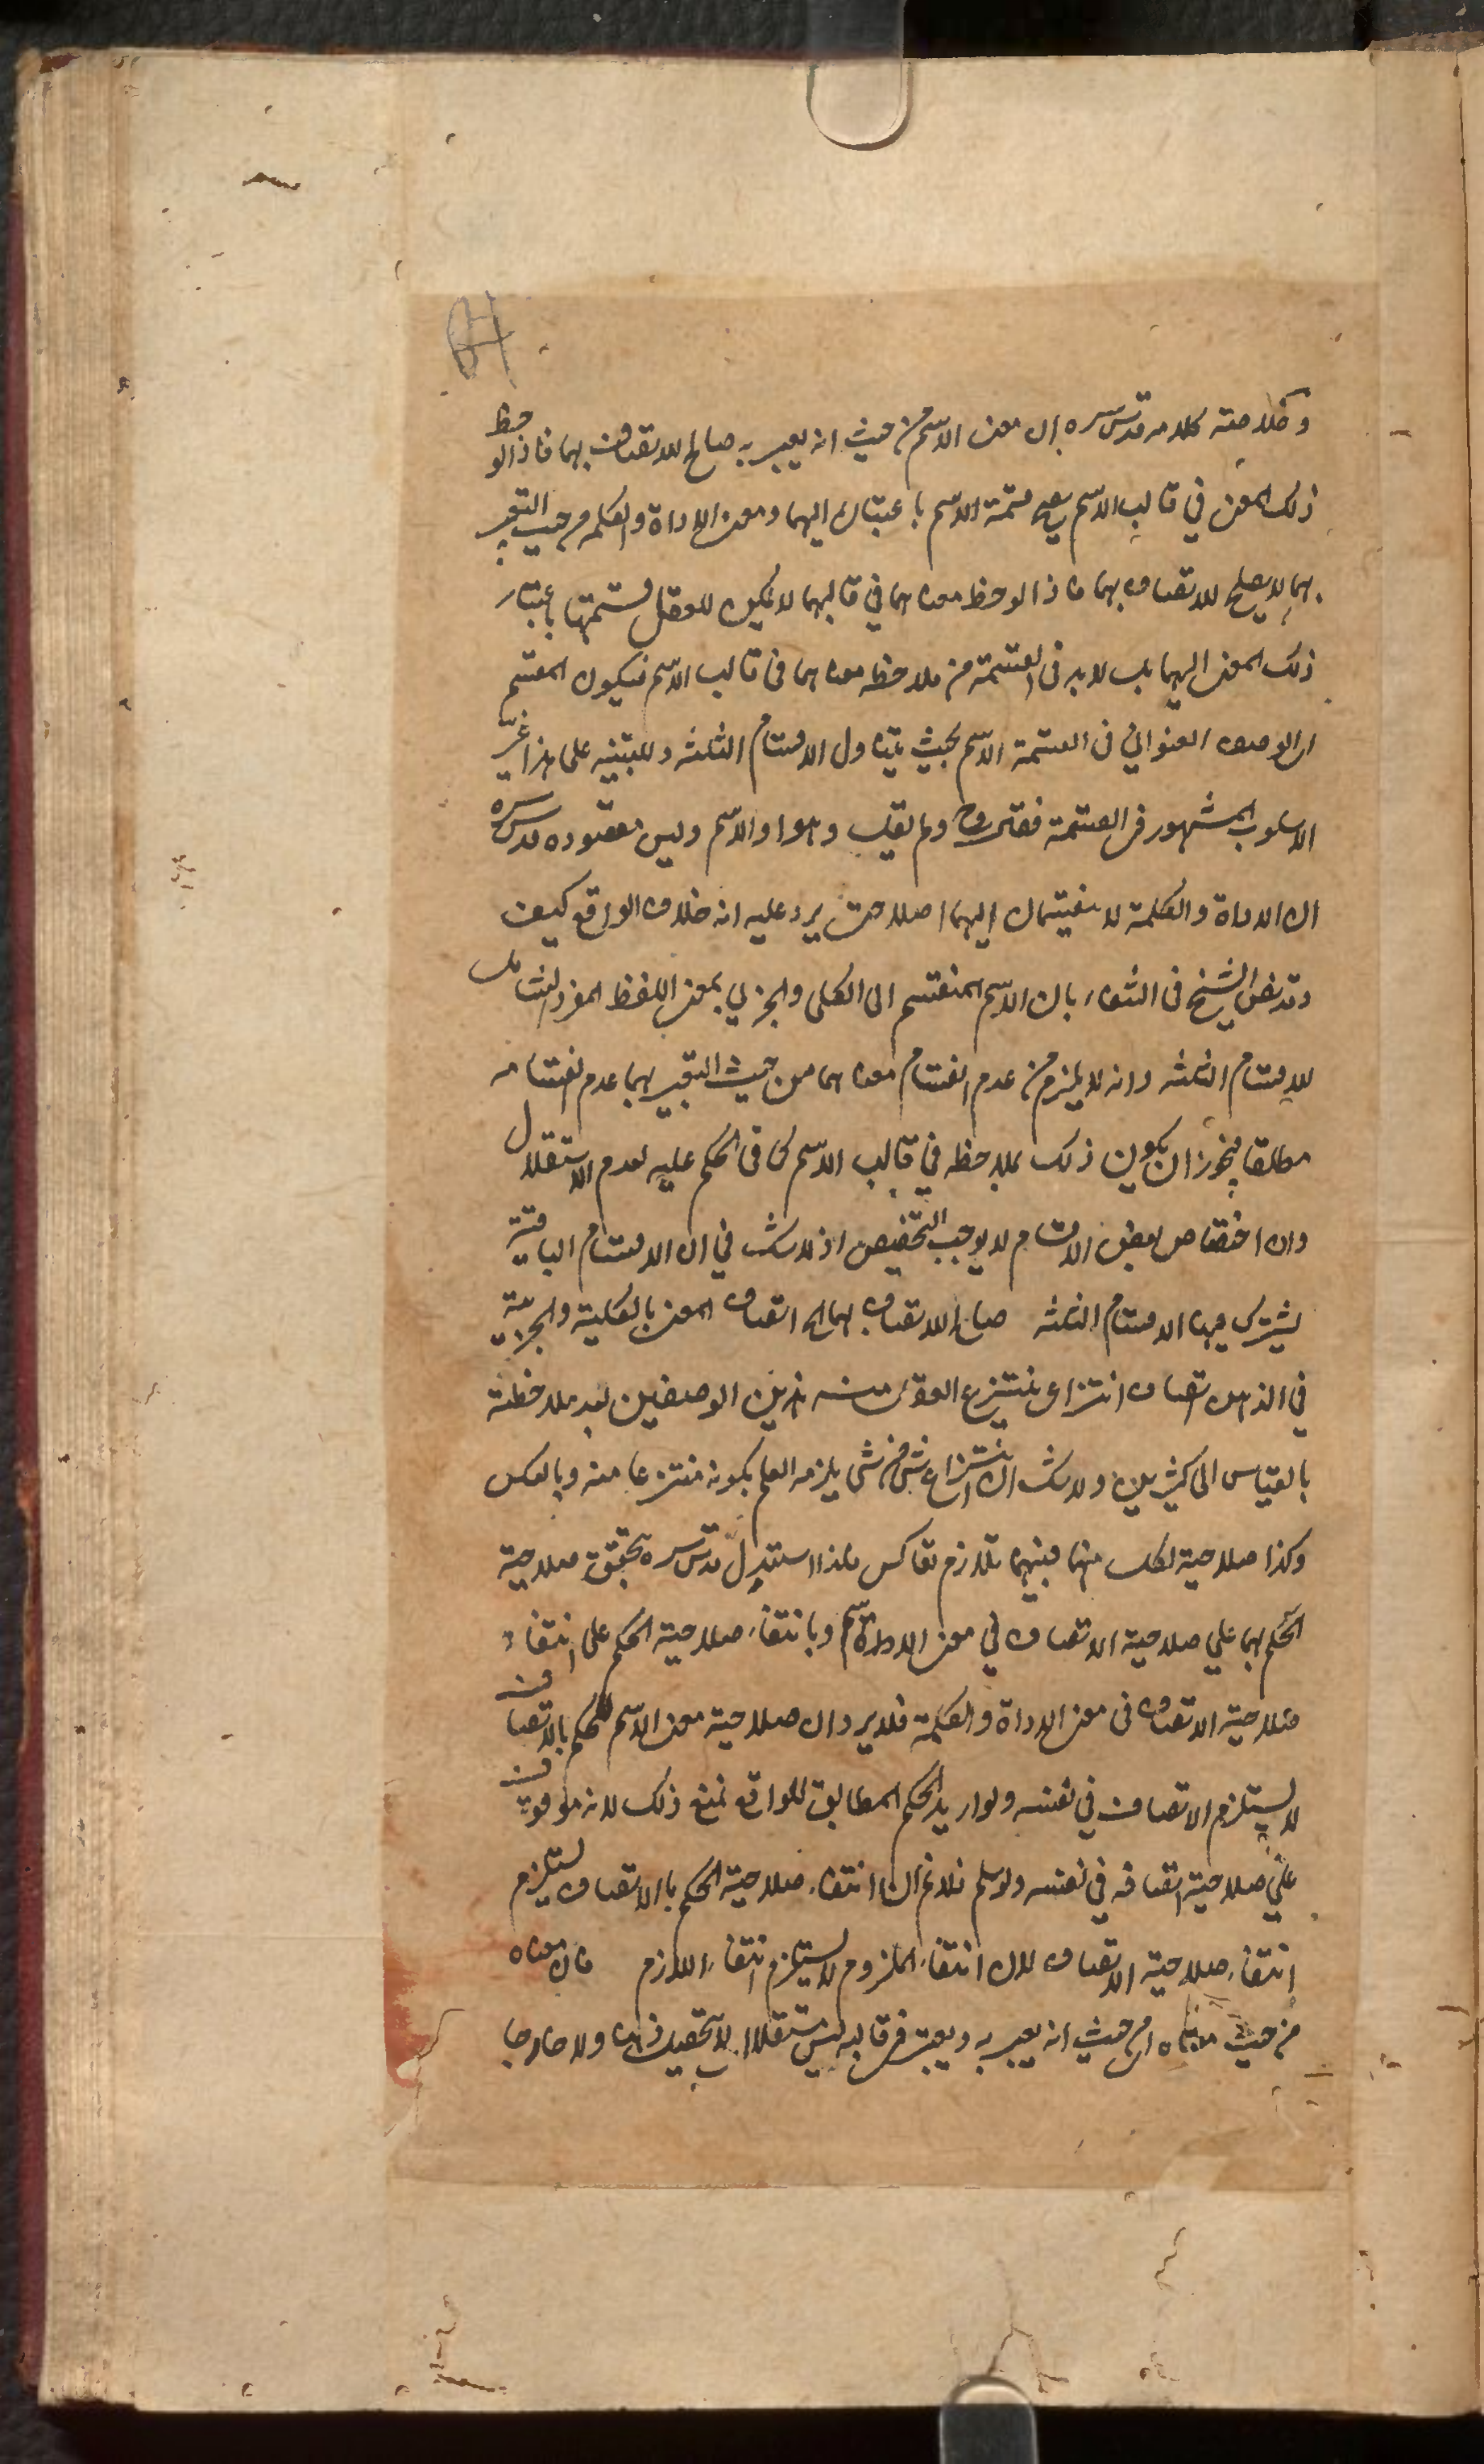 وخلاصة كلامه قدس سره ان معنى الاسم من حيث انه يعبر به صالح للاتصاف بهما فاذا لوحظ
ذلك المعنى في قالب الاسم يصح قسمة الاسم باعتباره اليهما ومعنى الاداة والكلمة من حيث التعبير
بهما لا يصلح للاتصاف بهما فاذا لوحظ معناهما في قالبهما لا يمكن للعقل قسمتهما باعتبار
ذلك المعنى اليهما بل لا بد في القسمة من ملاحظة معناهما في قالب الاسم فيكون المقسم
اى الوصف العنوانى في القسمة الاسم بحيث يتناول الاقسام الثلثة وللتنبيه على هذا غير
الاسلوب المشهور في القسمة فقال وح ولم يقل وهو او الاسم وليس مقصوده قدس سره
ان الاداة والكلمة لا ينقسمان اليهما اصلا حتى يرد عليه انه خلاف الواقع كيف
وقد نص الشيخ في الشفاء بان الاسم المنقسم الى الكلى والجزئى بمعنى اللفظ المفرد الشامل
للاقسام الثلثة وانه لا يلزم من عدم انقسام معناهما من حيث التعبير بهما عدم انقسامه
مطلقا فيجوز ان يكون ذلك بملاحظة في قالب الاسم كما في الحكم عليه لعدم الاستقلال
وان اختصاص بعض الاقسام لا يوجب التخصيص اذ لا شك في ان الاقسام الباقية
يشترك فيها الاقسام الثلثة صالح للاتصاف بهما اتصاف المعنى بالكلية والجزئية
في الذهن اتصاف انتزاعى ينتزع العقل منه هذين الوصفين بعد ملاحظته
بالقياس الى كثيرين ولا شك ان انتزاع شى من شى يلزمه العلم بكونه منتزعا منه وبالعكس
وكذا صلاحية لكل منهما فبينهما تلازم تعاكس فلذا استدل قدس سره بتحقق صلاحية
الحكم بهما على صلاحية الاتصاف في معنى الاسم وبانتفاء صلاحية الحكم على انتفاء
صلاحية الاتصاف في معنى الاداة والكلمة فلا يرد ان صلاحية معنى الاسم للحكم بالاتصاف
لا يستلزم الاتصاف في نفسه ولو اريد الحكم المطابق للواقع نمنع ذلك لانه موقوف
على صلاحية اتصافه في نفسه ولو سلم فلا نم ان انتفاء صلاحية الحكم بالاتصاف يستلزم
انتفاء صلاحية الاتصاف لان انتفاء الملزوم لا يستلزم انتفاء اللازم فان معناه
من حيث معناه اى من حيث انه يعبر به ويعتبر في قالبه ليس مستقلا لا يتحصل ذهنا ولا خارجا